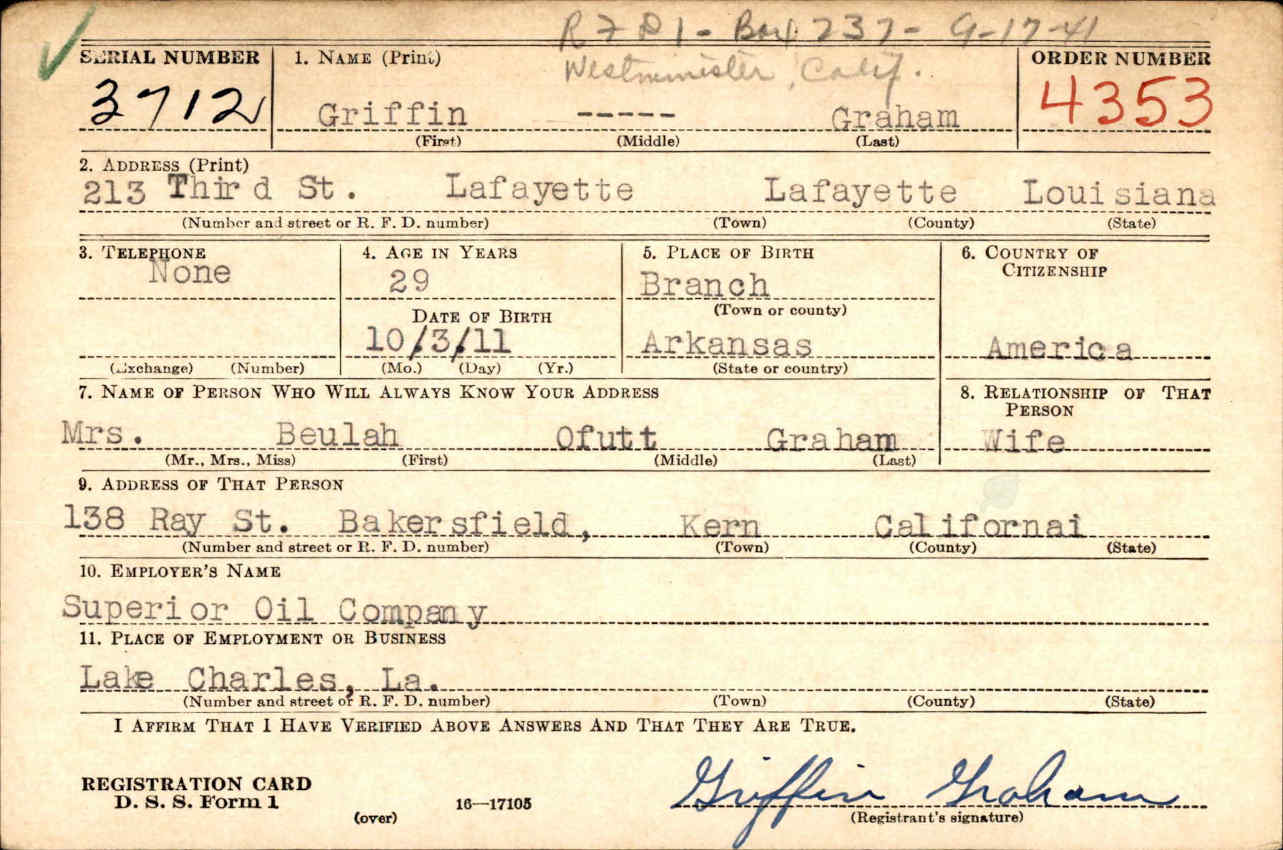 RFD1 - Box 737 - 9-17-41
Westminister, Calif.
SERIAL NUMBER 1. NAME (Print) ORDER NUMBER
3712 Griffin ----- Graham 4353
(First) (Middle) (Last)
2. ADDRESS (Print)
213 Third St. Lafayette Lafayette Louisiana
(Number and street or R. F. D. number) (Town) (County) (State)
3. TELEPHONE 4. AGE IN YEARS 5. PLACE OF BIRTH 6. COUNTRY OF CITIZENSHIP
None 29 Branch
(Town or county)
DATE OF BIRTH
10/3/11 Arkansas America
(Exchange) (Number) (Mo.) (Day) (Yr.) (State or country)
7. NAME OF PERSON WHO WILL ALWAYS KNOW YOUR ADDRESS 8. RELATIONSHIP OF THAT PERSON
Mrs. Beulah Ofutt Graham Wife
(Mr., Mrs., Miss) (First) (Middle) (Last)
9. ADDRESS OF THAT PERSON
138 Ray St. Bakersfield, Kern Californai
(Number and street or R. F. D. number) (Town) (County) (State)
10. EMPLOYER'S NAME
Superior Oil Company
11. PLACE OF EMPLOYMENT OR BUSINESS
Lake Charles, La.
(Number and street or R. F. D. number) (Town) (County) (State)
I AFFIRM THAT I HAVE VERIFIED ABOVE ANSWERS AND THAT THEY ARE TRUE.
REGISTRATION CARD
D. S. S. Form 1 16—17105 Griffin Graham
(over) (Registrant's signature)